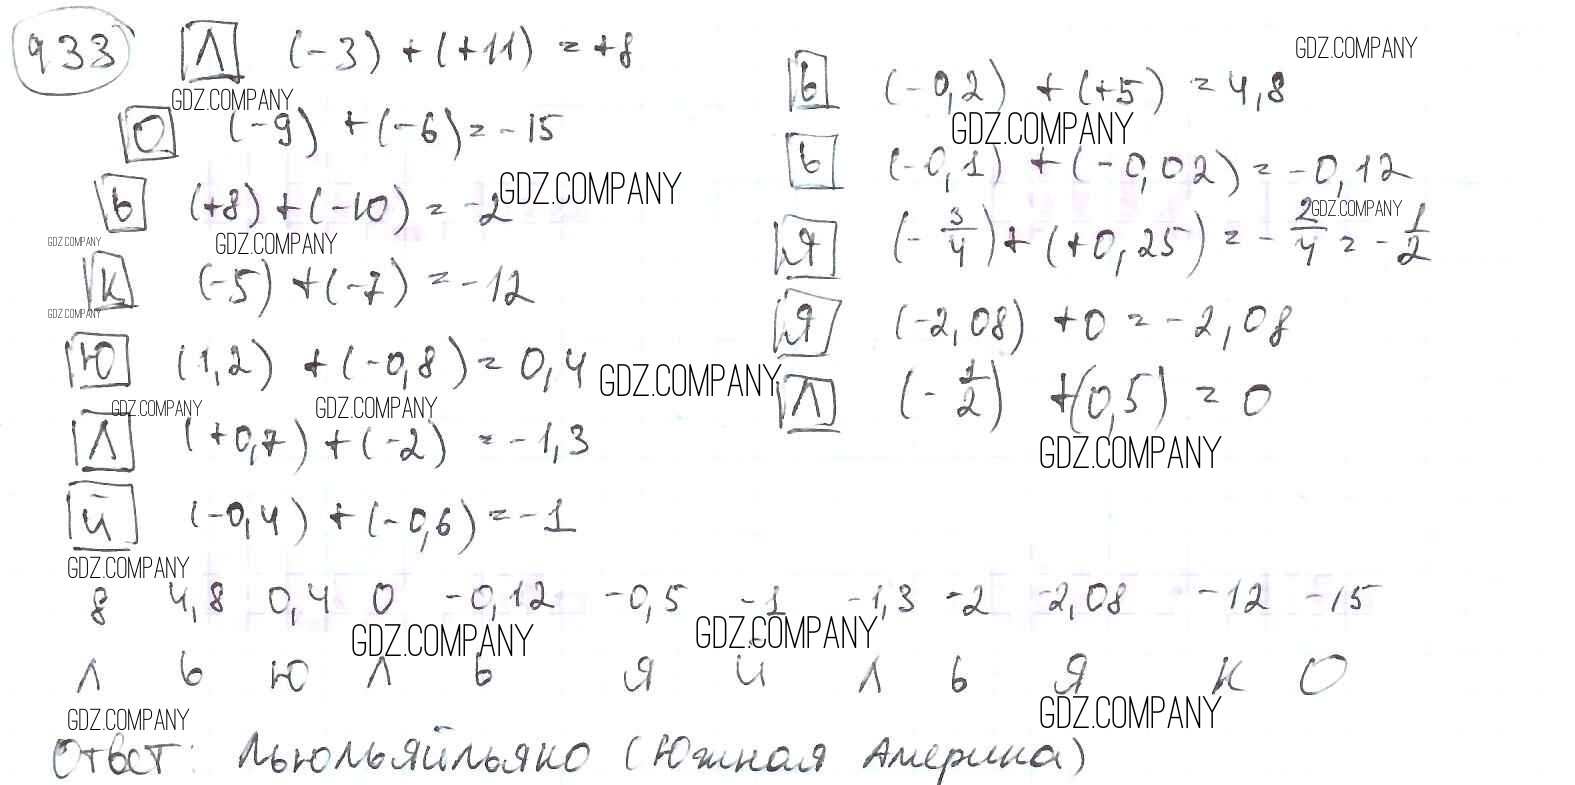 933 Л (-3) + (+11) = +8
GDZ.COMPANY
О (-9) + (-6) = -15
Ь (+8) + (-10) = -2
GDZ.COMPANY
GDZ.COMPANY
GDZ.COMPANY
К (-5) + (-7) = -12
GDZ.COMPANY
Ю (1,2) + (-0,8) = 0,4
GDZ.COMPANY
GDZ.COMPANY
GDZ.COMPANY
Л (+0,7) + (-2) = -1,3
Й (-0,4) + (-0,6) = -1
GDZ.COMPANY
GDZ.COMPANY
Ь (-0,2) + (+5) = 4,8
GDZ.COMPANY
Ь (-0,1) + (-0,02) = -0,12
GDZ.COMPANY
Я (-3/4) + (+0,25) = -2/4 = -1/2
Я (-2,08) + 0 = -2,08
Л (-1/2) + (0,5) = 0
GDZ.COMPANY
8 4,8 0,4 0 -0,12 -0,5 -1 -1,3 -2 -2,08 -12 -15
GDZ.COMPANY
GDZ.COMPANY
Л Ь Ю Л Ь Я Й Л Ь Я К О
GDZ.COMPANY
GDZ.COMPANY
Ответ: Льюльяйльяко (Южная Америка)